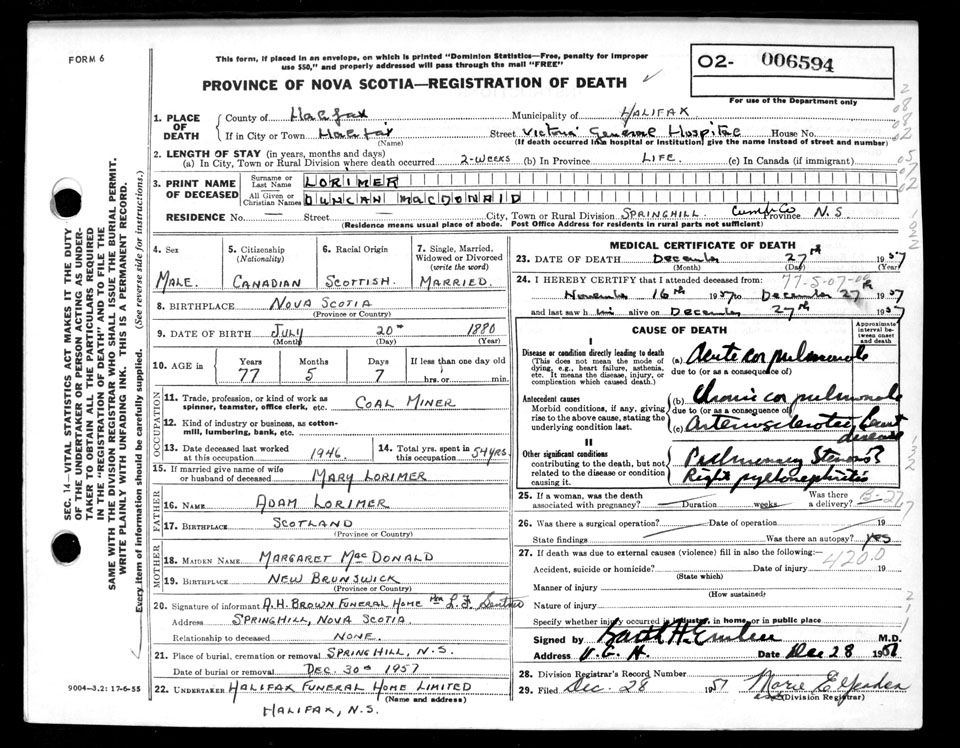 FORM 6
This form, if placed in an envelope, on which is printed "Dominion Statistics—Free, penalty for improper
use $50," and properly addressed will pass through the mail "FREE"
PROVINCE OF NOVA SCOTIA—REGISTRATION OF DEATH
02- 006594
For use of the Department only
SEC. 14—VITAL STATISTICS ACT MAKES IT THE DUTY
OF THE UNDERTAKER OR PERSON ACTING AS UNDER-
TAKER TO OBTAIN ALL THE PARTICULARS REQUIRED
IN THE "REGISTRATION OF DEATH" AND TO FILE THE
SAME WITH THE DIVISION REGISTRAR WHO SHALL ISSUE THE BURIAL PERMIT.
WRITE PLAINLY WITH UNFADING INK. THIS IS A PERMANENT RECORD.
Every item of information should be carefully supplied. (See reverse side for instructions.)
1. PLACE OF DEATH
County of Halifax Municipality of HALIFAX
If in City or Town Halifax Street Victoria General Hospital House No.
(Name) (If death occurred in a hospital or institution, give the name instead of street and number)
2. LENGTH OF STAY (in years, months and days)
(a) In City, Town or Rural Division where death occurred 2-WEEKS (b) In Province LIFE. (c) In Canada (if immigrant)
3. PRINT NAME OF DECEASED
Surname or Last Name LORIMER
All Given or Christian Names DUNCAN MACDONALD
RESIDENCE No. — Street — City, Town or Rural Division SPRINGHILL. Cumb Co Province N.S.
(Residence means usual place of abode. Post Office Address for residents in rural parts not sufficient)
4. Sex MALE.
5. Citizenship (Nationality) CANADIAN
6. Racial Origin SCOTTISH.
7. Single, Married, Widowed or Divorced (write the word) MARRIED.
8. BIRTHPLACE NOVA SCOTIA
(Province or Country)
9. DATE OF BIRTH JULY 20th 1880
(Month) (Day) (Year)
10. AGE in Years 77 Months 5 Days 7 If less than one day old hrs. or min.
OCCUPATION
11. Trade, profession, or kind of work as
spinner, teamster, office clerk, etc. COAL MINER
12. Kind of industry or business, as cotton-
mill, lumbering, bank, etc.
13. Date deceased last worked
at this occupation 1946.
14. Total yrs. spent in
this occupation 54 YRS.
15. If married give name of wife
or husband of deceased MARY LORIMER
FATHER
16. NAME ADAM LORIMER
17. BIRTHPLACE SCOTLAND
(Province or Country)
MOTHER
18. MAIDEN NAME MARGARET MACDONALD
19. BIRTHPLACE NEW BRUNSWICK
(Province or Country)
20. Signature of informant A.H. BROWN FUNERAL HOME
Address SPRINGHILL, NOVA SCOTIA.
Relationship to deceased NONE.
21. Place of burial, cremation or removal SPRINGHILL, N.S.
Date of burial or removal DEC. 30th 1957
22. UNDERTAKER HALIFAX FUNERAL HOME LIMITED
(Name and address)
HALIFAX, N.S.
9004—3.2: 17-6-55
MEDICAL CERTIFICATE OF DEATH
23. DATE OF DEATH December 27th 1957
(Month) (Day) (Year)
24. I HEREBY CERTIFY that I attended deceased from:
November 16th 1957 to December 27 1957
and last saw him alive on December 27th 1957
CAUSE OF DEATH
Approximate interval between onset and death
I
Disease or condition directly leading to death
(This does not mean the mode of
dying, e.g., heart failure, asthenia,
etc. It means the disease, injury, or
complication which caused death.)
(a) Acute cor pulmonale
due to (or as a consequence of)
Antecedent causes
Morbid conditions, if any, giving
rise to the above cause, stating the
underlying condition last.
(b) Chronic cor pulmonale
due to (or as a consequence of)
(c) Arteriosclerotic heart
disease
II
Other significant conditions
contributing to the death, but not
related to the disease or condition
causing it.
Pulmonary Stenosis
Right pyelonephritis
25. If a woman, was the death
associated with pregnancy? Duration weeks Was there a delivery?
26. Was there a surgical operation? Date of operation 19
State findings Was there an autopsy? yes
27. If death was due to external causes (violence) fill in also the following:—
420.0
Accident, suicide or homicide? Date of injury 19
(State which)
Manner of injury
(How sustained)
Nature of injury
Specify whether injury occurred in industry, in home, or in public place
Signed by M.D.
Address V.G.H. Date Dec 28 1957
28. Division Registrar's Record Number
29. Filed Dec. 28 1957 Marie E.
(Division Registrar)